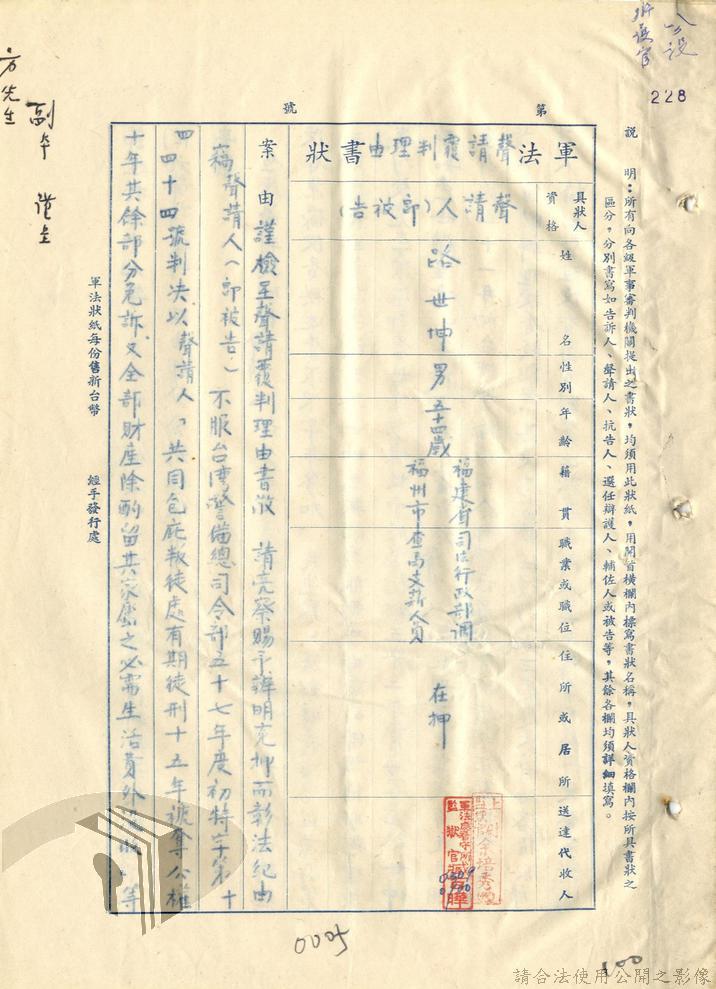 228
第　　　　號
說　明：所有向各級軍事審判機關提出之書狀，均須用此狀紙，用開首橫欄內標寫書狀名稱，具狀人資格欄內按所具書狀之
區分，分別書寫如告訴人、聲請人、抗告人、選任辯護人、輔佐人或被告等，其餘各欄均須詳細填寫。
軍法聲請覆判理由書狀
具狀人資格
聲請人(即被告)
姓名
路世坤
性別
男
年齡
五十四歲
籍貫
福建省
福州市
職業或職位
司法行政部調
查局支薪人員
住所或居所
在押
送達代收人
案由 謹檢呈聲請覆判理由書狀 請亮察賜予詳明究抑而彰法紀由
緣聲請人(即被告)不服台湾警備總司令部五十七年度初特字第十
四 四十四號判決以聲請人「共同包庇叛徒處有期徒刑十五年褫奪公權
十年其餘部分免訴又全部財產除酌留其家屬之必需生活費外沒收」等
軍法狀紙每份售新台幣
經手發行處
方先生
0005
100
請合法使用公開之影像